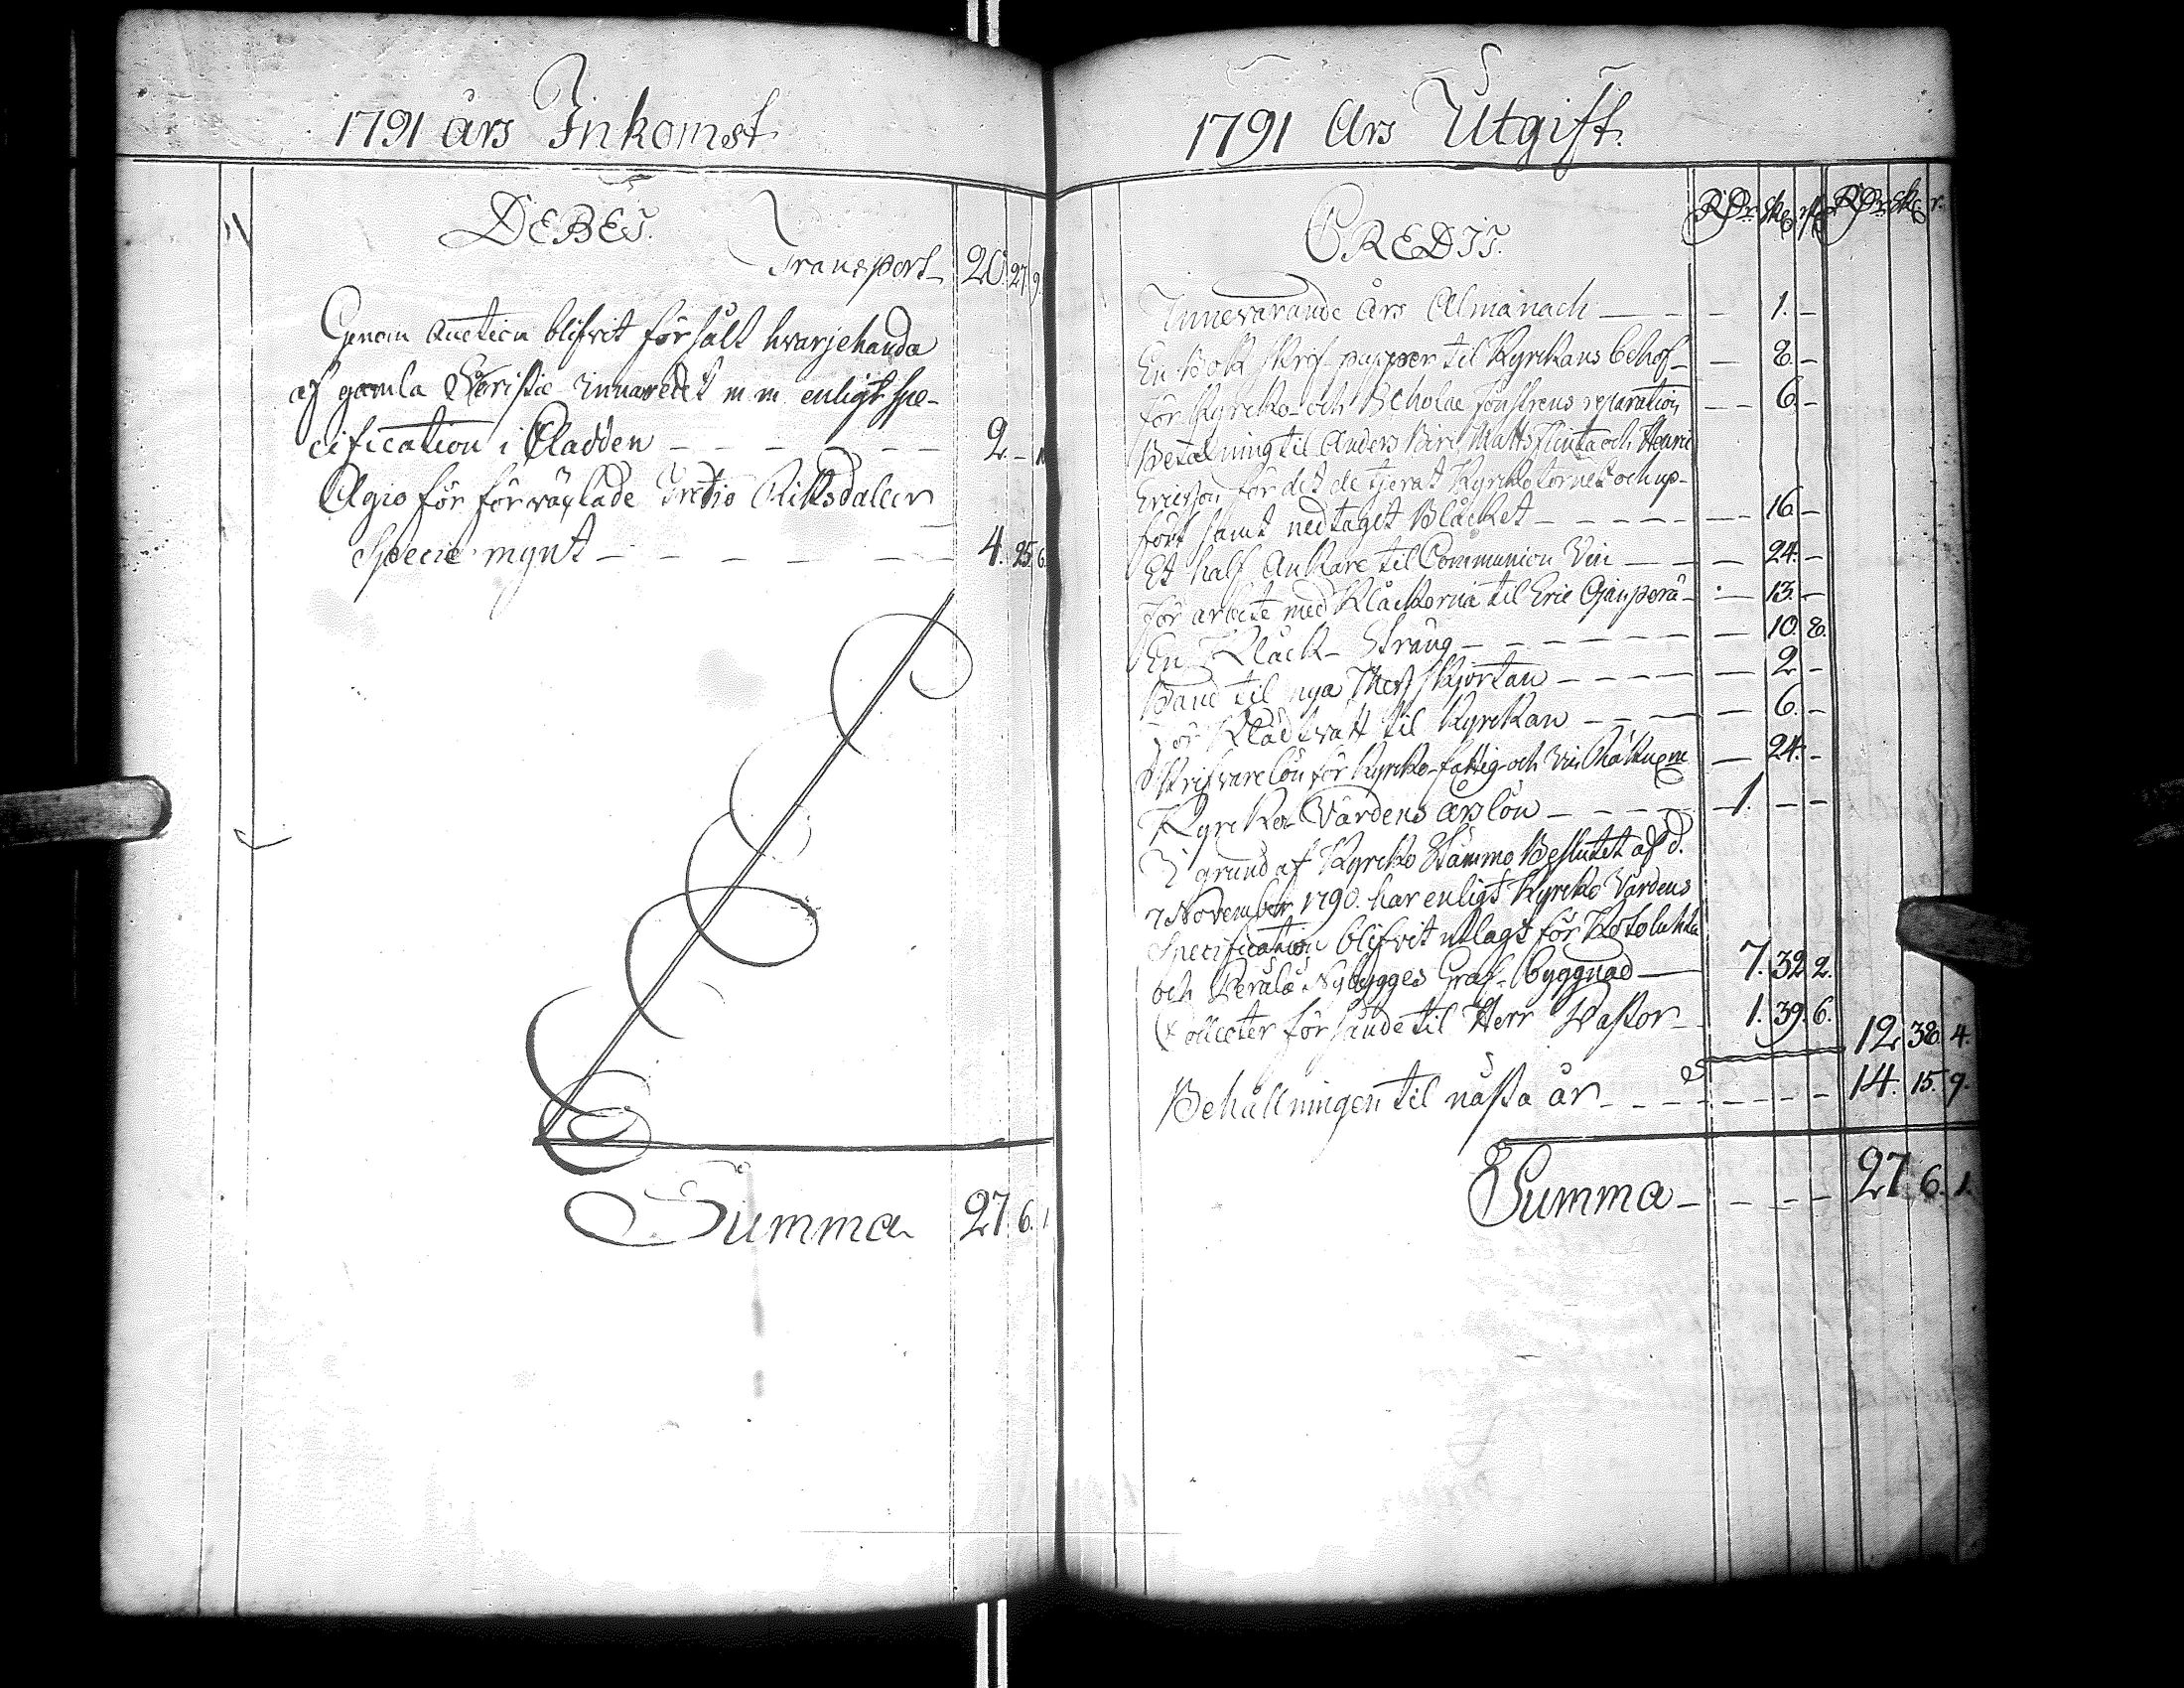 1791 års Inkomst
DEBET.
Transport 20. 27. 9.
Genom Auction blifvit försålt hvarjehanda
af gamla innaredet m m enligt spe-
cification i Cladden - - - - - - 2. -
Agio för förväxlade Tretio Riksdaler
Specie mynt - - - - - - 4. 25. 6.
Summa 27. 6. 1.
1791 Års Utgift.
CREDIT.
RDr sk r RDr sk r.
Innevarande Års Almanach - - - 1. -
En Bok skrif papper til Kyrckans behof - - 8. -
För Kyrcko- och Scholae fönstrens reparation - - 6. -
Betalning til Anders Matts Flinta och Henric
Ericsson för det de tjerat Kyrcko tornet och up-
fört samt nedtaget Blåcket - - - - - 16 -
Et half Ankare til Communion Vin - - - 24. -
För arbete med Klåckorna til Eric - 13. -
En Klåck- Sträng - - - - - - 10. 8.
Band til nya Mess skjortan - - - - - 2 -
För Klädtvätt til Kyrckan - - - - 6. -
Skrifvare lön för Kyrcko- fattig- och Vin Räkn - 24. -
Kyrcko- Värdens Årslön - - - - 1. - -
I grund af Kyrcko Stämmo Beslutet af d.
7 November 1790. har enligt Kyrcko Värdens
Specification blifvit utlagt för
och Perälä Nybygges Graf- byggnad - 7. 32. 2.
Collecter för sände til Herr Pastor - 1. 39. 6. 12. 38. 4.
Behållningen til nästa år - - - - - - 14. 15. 9.
Summa - - - - 27. 6. 1.